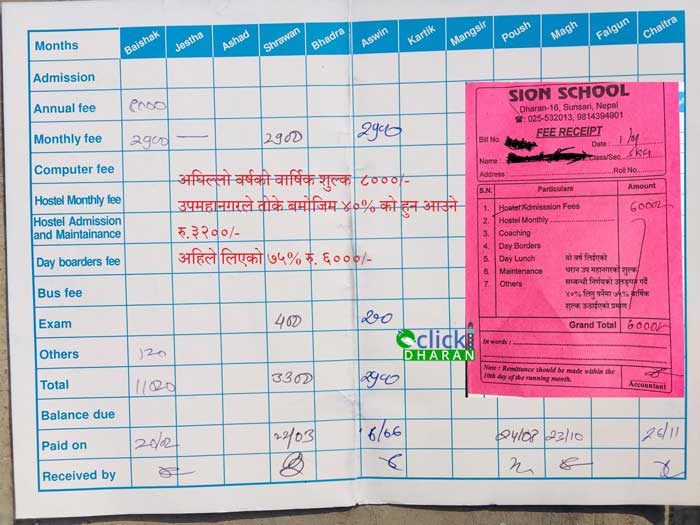 Months Baishak Jestha Ashad Shrawan Bhadra Aswin Kartik Mangsir Poush Magh Falgun Chaitra
Admission
Annual fee ८०००
Monthly fee 2900 — 2900 2900
Computer fee
Hostel Monthly fee
Hostel Admission and Maintainance
Day boarders fee
Bus fee
Exam 400
Others 120
Total 11020 3300 2900
Balance due
Paid on 22/03 6/06 24/08 23/10 26/11
Received by
अघिल्लो वर्षको वार्षिक शुल्क ८०००/-
उपमहानगरले तोके बमोजिम ४०% को हुन आउने
रु.३२००/-
अहिले लिएको ७५% रु. ६०००/-
click
DHARAN
SION SCHOOL
Dharan-16, Sunsari, Nepal
☎: 025-532013, 9814394901
FEE RECEIPT
Bill No. Date :
Name : Class/Sec
Address : Roll No.
S.N. Particulars Amount
1. Hostel Admission Fees 6000/-
2. Hostel Monthly
3. Coaching
4. Day Borders
5. Day Lunch
6. Maintenance
7. Others
यो वर्ष लिईएको
धरान उप महानगरको शुल्क
सम्बन्धी निर्णयको उलङ्घन गर्दै
४०% लिनु पर्नेमा ७५% वार्षिक
शुल्क उठाईएको प्रमाण
Grand Total 6000/-
In words :
Note : Remittance should be made within the
10th day of the running month.
Accountant